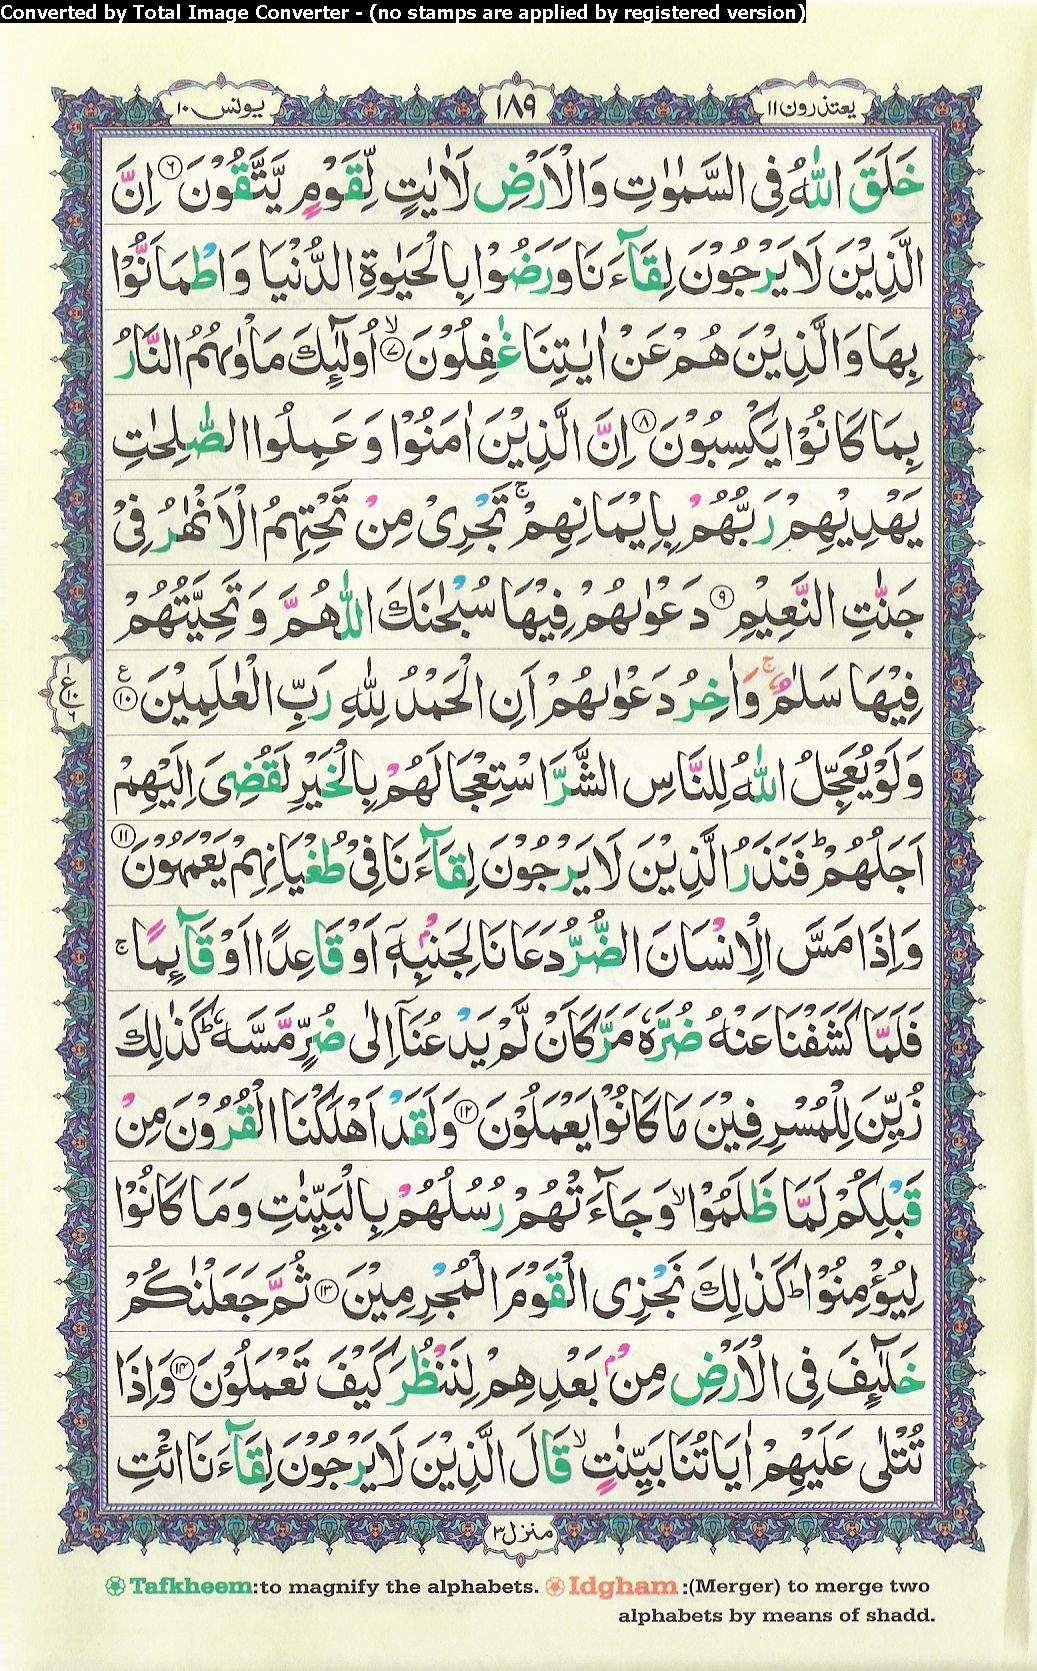 Converted by Total Image Converter - (no stamps are applied by registered version)
يعتذرون ١١
١٨٩
يونس ١٠
خَلَقَ اللّٰهُ فِی السَّمٰوٰتِ وَالْاَرْضِ لَاٰیٰتٍ لِّقَوْمٍ یَّتَّقُوْنَ ﴿۶﴾ اِنَّ
الَّذِیْنَ لَا یَرْجُوْنَ لِقَآءَنَا وَرَضُوْا بِالْحَیٰوةِ الدُّنْیَا وَاطْمَاَنُّوْا
بِهَا وَالَّذِیْنَ هُمْ عَنْ اٰیٰتِنَا غٰفِلُوْنَ ۙ﴿۷﴾ اُولٰٓئِكَ مَاْوٰىهُمُ النَّارُ
بِمَا كَانُوْا یَكْسِبُوْنَ ﴿۸﴾ اِنَّ الَّذِیْنَ اٰمَنُوْا وَعَمِلُوا الصّٰلِحٰتِ
یَهْدِیْهِمْ رَبُّهُمْ بِاِیْمَانِهِمْ ۚ تَجْرِیْ مِنْ تَحْتِهِمُ الْاَنْهٰرُ فِیْ
جَنّٰتِ النَّعِیْمِ ﴿۹﴾ دَعْوٰىهُمْ فِیْهَا سُبْحٰنَكَ اللّٰهُمَّ وَتَحِیَّتُهُمْ
فِیْهَا سَلٰمٌ ۚ وَاٰخِرُ دَعْوٰىهُمْ اَنِ الْحَمْدُ لِلّٰهِ رَبِّ الْعٰلَمِیْنَ ﴿۱۰﴾ ع
وَلَوْ یُعَجِّلُ اللّٰهُ لِلنَّاسِ الشَّرَّ اسْتِعْجَالَهُمْ بِالْخَیْرِ لَقُضِیَ اِلَیْهِمْ
اَجَلُهُمْ ؕ فَنَذَرُ الَّذِیْنَ لَا یَرْجُوْنَ لِقَآءَنَا فِیْ طُغْیَانِهِمْ یَعْمَهُوْنَ ﴿۱۱﴾
وَاِذَا مَسَّ الْاِنْسَانَ الضُّرُّ دَعَانَا لِجَنْۢبِهٖۤ اَوْ قَاعِدًا اَوْ قَآئِمًا ۚ
فَلَمَّا كَشَفْنَا عَنْهُ ضُرَّهٗ مَرَّ كَاَنْ لَّمْ یَدْعُنَاۤ اِلٰی ضُرٍّ مَّسَّهٗ ؕ كَذٰلِكَ
زُیِّنَ لِلْمُسْرِفِیْنَ مَا كَانُوْا یَعْمَلُوْنَ ﴿۱۲﴾ وَلَقَدْ اَهْلَكْنَا الْقُرُوْنَ مِنْ
قَبْلِكُمْ لَمَّا ظَلَمُوْا ۙ وَجَآءَتْهُمْ رُسُلُهُمْ بِالْبَیِّنٰتِ وَمَا كَانُوْا
لِیُؤْمِنُوْا ؕ كَذٰلِكَ نَجْزِی الْقَوْمَ الْمُجْرِمِیْنَ ﴿۱۳﴾ ثُمَّ جَعَلْنٰكُمْ
خَلٰٓئِفَ فِی الْاَرْضِ مِنْۢ بَعْدِهِمْ لِنَنْظُرَ كَیْفَ تَعْمَلُوْنَ ﴿۱۴﴾ وَاِذَا
تُتْلٰی عَلَیْهِمْ اٰیَاتُنَا بَیِّنٰتٍ ۙ قَالَ الَّذِیْنَ لَا یَرْجُوْنَ لِقَآءَنَا ائْتِ
ع ١٠
منزل ٣
Tafkheem:to magnify the alphabets. Idgham :(Merger) to merge two
alphabets by means of shadd.